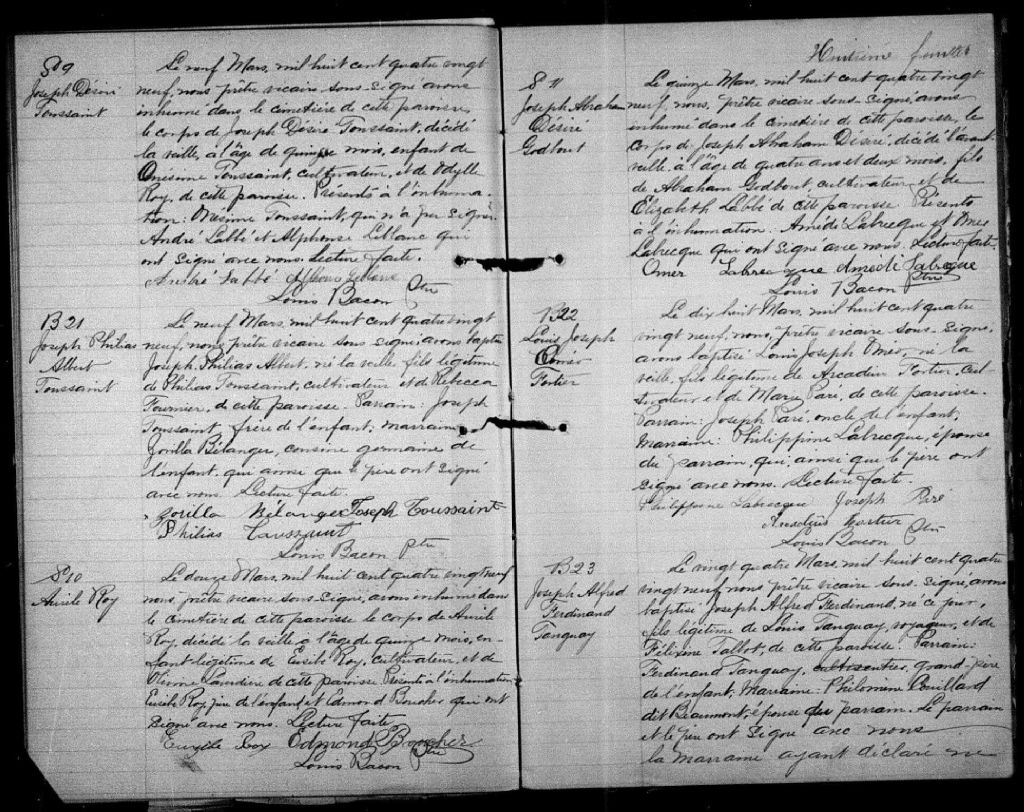 S 9
Joseph Désiré
Toussaint
Le neuf Mars, mil huit cent quatre vingt
neuf, nous prêtre vicaire sous-signé avons
inhumé dans le cimetière de cette paroisse
le corps de Joseph Désiré Toussaint, décédé
la veille, à l'âge de quinze mois, enfant de
Onésime Toussaint, cultivateur, et de Odylle
Roy, de cette paroisse. Présents à l'inhuma-
tion: Onésime Toussaint, qui n'a pu signer
André Labbé et Alphonse Leblanc qui
ont signé avec nous. Lecture faite.
André Labbé
Louis Bacon Ptre
B 21
Joseph Philias
Albert
Toussaint
Le neuf Mars, mil huit cent quatre vingt
neuf, nous, prêtre vicaire sous signé, avons baptisé
Joseph Philias Albert, né la veille, fils légitime
de Philias Toussaint, cultivateur et de Rebecca
Fournier, de cette paroisse. Parrain: Joseph
Toussaint, frère de l'enfant, marraine
Zorilla Bélanger, cousine germaine de
l'enfant, qui ainsi que le père ont signé
avec nous. Lecture faite.
Zorilla Bélanger Joseph Toussaint
Philias Toussaint
Louis Bacon Ptre
S 10
Roy
Le douze Mars, mil huit cent quatre vingt neuf
nous, prêtre vicaire sous-signé, avons inhumé dans
le cimetière de cette paroisse le corps de
Roy, décédé la veille à l'âge de quinze mois, en-
fant légitime de Roy, cultivateur, et de
de cette paroisse. Présents à l'inhumation
Roy, père de l'enfant et Edmond Boucher qui ont
signé avec nous. Lecture faite
Roy Edmond Boucher
Louis Bacon Ptre
Huitième
S 11
Joseph Abraham
Désiré
Godbout
Le quinze Mars, mil huit cent quatre vingt
neuf, nous, prêtre vicaire sous-signé, avons
inhumé dans le cimetière de cette paroisse, le
corps de Joseph Abraham Désiré, décédé l'avant
veille, à l'âge de quatre ans et deux mois, fils
de Abraham Godbout, cultivateur, et de
Elizabeth Labbé de cette paroisse. Présents
à l'inhumation. Amédé Labrecque et Omer
Labrecque qui ont signé avec nous. Lecture faite
Omer Labrecque Amédé Labrecque
Louis Bacon Ptre
B 22
Louis Joseph
Omer
Fortier
Le dix huit Mars, mil huit cent quatre
vingt neuf, nous, prêtre vicaire sous-signé,
avons baptisé Louis Joseph Omer, né la
veille, fils légitime de Fortier, cul-
tivateur et de Marie Paré, de cette paroisse.
Parrain: Joseph Paré, oncle de l'enfant,
Marraine: Philippine Labrecque, épouse
du parrain, qui, ainsi que le père ont
signé avec nous. Lecture faite.
Philippine Labrecque Joseph Paré
Louis Bacon Ptre
B 23
Joseph Alfred
Ferdinand
Tanguay
Le vingt quatre Mars, mil huit cent quatre
vingt neuf, nous prêtre vicaire sous-signé, avons
baptisé Joseph Alfred Ferdinand, né ce jour,
fils légitime de Louis Tanguay, voyageur, et de
Félixine Talbot, de cette paroisse. Parrain:
Ferdinand Tanguay, grand-père
de l'enfant, Marraine: Philomène Couillard
dit Beaumont, épouse du parrain. Le parrain
et le père ont signé avec nous
la marraine ayant déclaré ne